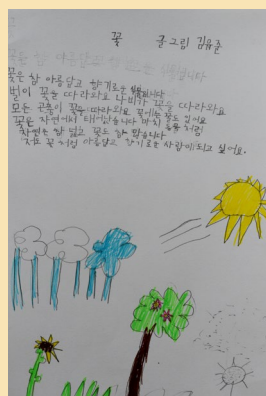 꽃 글그림 김유준
꽃은 참 아름답고 향기로운 식물입니다
벌이 꽃을 따라와요 나비가 꽃을 따라와요
모든 곤충이 꽃을 따라와요 꽃에는 꿀도 있어요
꽃은 자연에서 태어났습니다 마치 동물 처럼
자연은 참 넓고 꽃도 참 많습니다
저도 꽃 처럼 아름답고 향기로운 사람이 되고 싶어요.